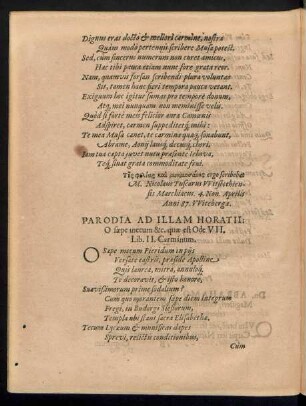 Dignus erat docto & mellari carmine, nostra
Quàm modò pertenuis scribere Musa potest.
Sed, cùm sincerus numerum non curet amicus,
Hæc tibi pauca etiam nunc fore grata reor.
Nam, quamvis forsan scribendi plura voluntas
Sit, tamen hanc fieri tempora pauca vetant.
Exiguum hoc igitur sumas pro tempore donum,
Atq; mei nunquam non meminisse velis.
Quòd si fortè meis felicior aura Camœnis
Adspiret, carmen suppeditetq; mihi:
Te mea Musa canet, te carmina quæq; sonabunt,
Abrame, Aonij lausq; decusq; chori;
Iam tua cœpta juvet nutu præsente Iehova,
Teq; sinat grata incommoditate frui.
ergo scribebat
M. Nicolaus Tuscanus
Marchiacus. 4. Non. Aprilis
Anni 87. VVitebergæ.
PARODIA AD ILLAM HORATII:
O sæpe mecum &c. quæ est Ode VII.
Lib. II. Carminum.
O Sæpe mecum Pieridum in pijs
Versate castris, præside Apolline
Quis laurea, mitra, annuloq;
Te decoravit, & isto honore,
Suavissimorum prime sodalium?
Cum quo morantem sæpe diem integrum
Fregi, in Budorgæ Slesiorum,
Templa ubi stant sacra Elisabethæ.
Tecum Lyceum & munificas dapes
Sprevi, relictis conditionibus,
Cùm